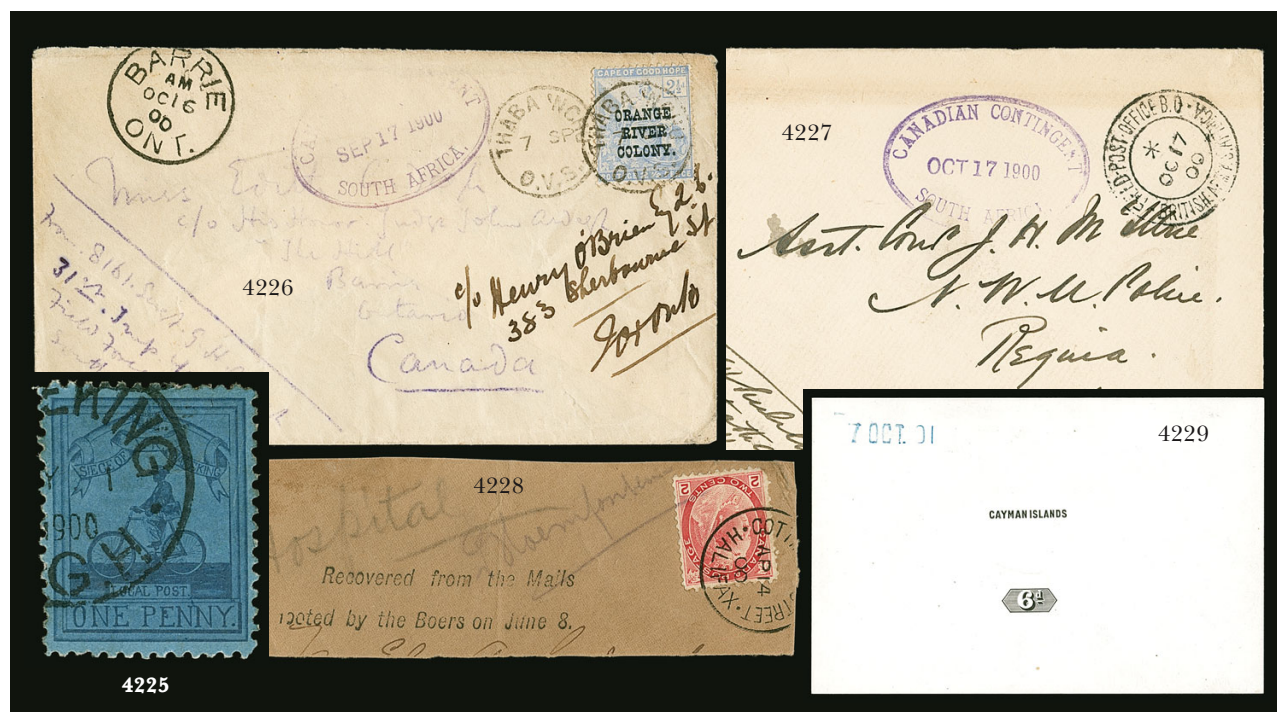 BARRIE
AM
OC 16
00
ONT.
SEP 17 1900
SOUTH AFRICA.
THABA NCHU
7 SP
O.V.S.
CAPE OF GOOD HOPE
ORANGE
RIVER
COLONY.
O.V.S.
Miss
c/o His Honor Judge John Ardagh
The Hill
Barrie
Ontario
Canada
c/o Henry O'Brien Esq.
383 Sherbourne St
Toronto
4226
4227
CANADIAN CONTINGENT
OCT 17 1900
SOUTH AFRICA.
FIELD POST OFFICE B.O.
OC 17
00
BRITISH ARMY S. AFRICA
Asst. Comr J. H. McIllree
N. W. M. Police.
Regina.
SIEGE OF
KING
1
1900
G.H.
LOCAL POST.
ONE PENNY.
4225
4228
Hospital
Recovered from the Mails
looted by the Boers on June 8.
TWO CENTS
2
2
AP 14
00
STREET
HALIFAX
7 OCT. 01
4229
CAYMAN ISLANDS
6d